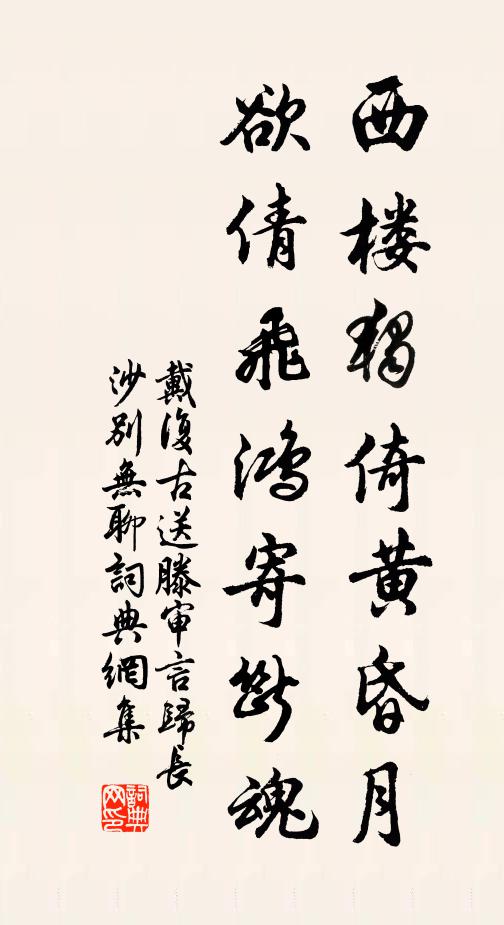 西楼獨倚黄昏月
欲倩飛鴻寄斷魂
戴復古送滕审言歸長
沙别無聊詞典網集
詞典
网印